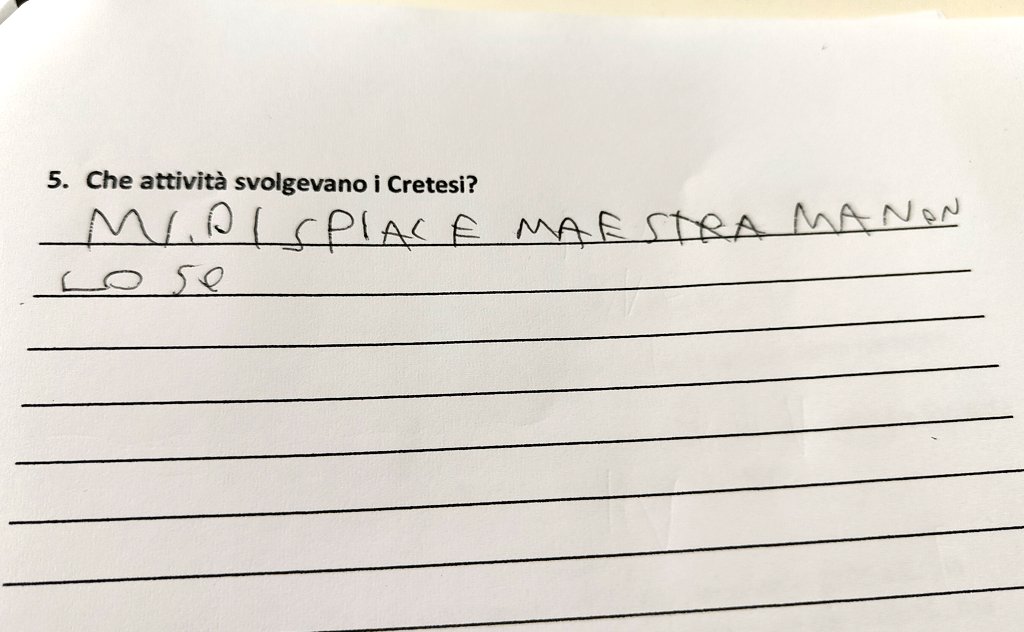 5. Che attività svolgevano i Cretesi?
MI DISPIACE MAESTRA MA NON
LO SO